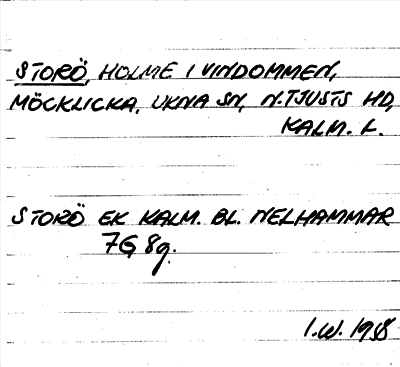 STORÖ, HOLME I VINDOMMEN,
MÖCKLICKA, UKNA SN, N. TJUSTS HD,
KALM. L.
STORÖ EK KALM. BL. NELHAMMAR
7G 8g.
I.W. 1958